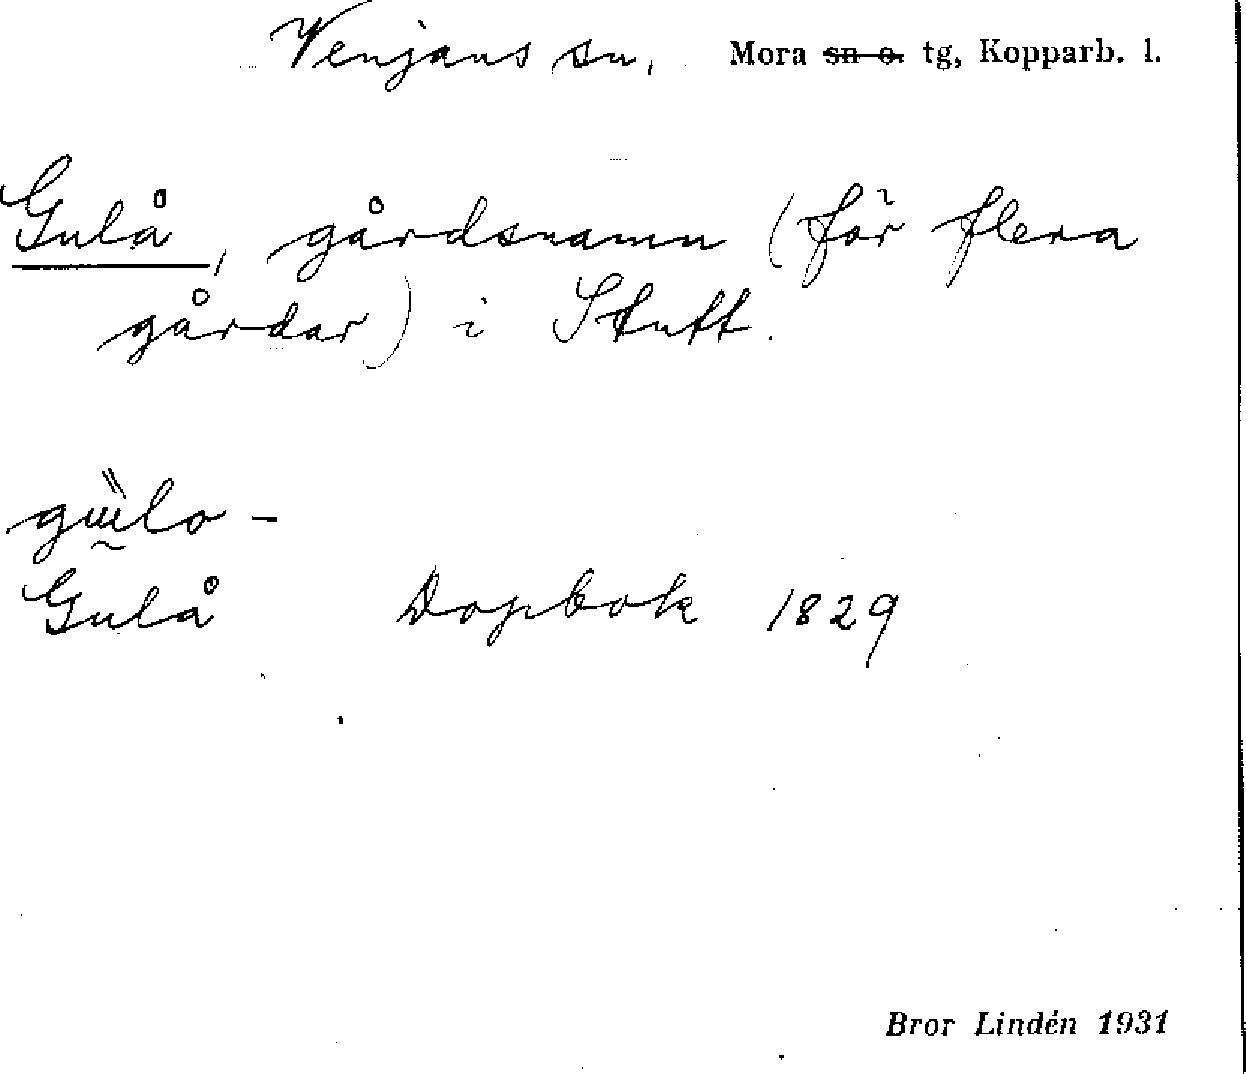 Venjans sn, Mora sn o. tg, Kopparb. l.
Gulå, gårdsnamn (för flera
gårdar) i Stutt.
Gulå Dopbok 1829
Bror Lindén 1931